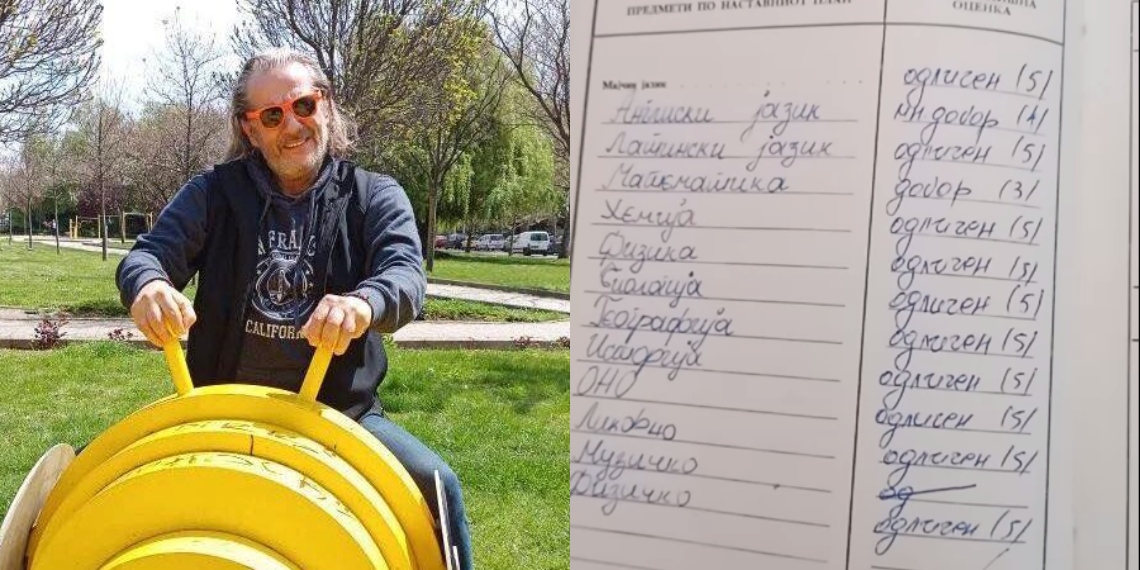 CALIFOR
ПРЕДМЕТИ ПО НАСТАВНИОТ ПЛАН
ОЦЕНКА
Мајчин јазик одличен (5/
Англиски јазик мн.добар (4/
Латински јазик одличен (5/
Математика добар (3/
Хемија одличен (5/
Физика одличен (5/
Биологија одличен (5/
Географија одличен (5/
Историја одличен (5/
ОНО одличен (5/
Ликовно одличен (5/
Музичко од
Физичко одличен (5/